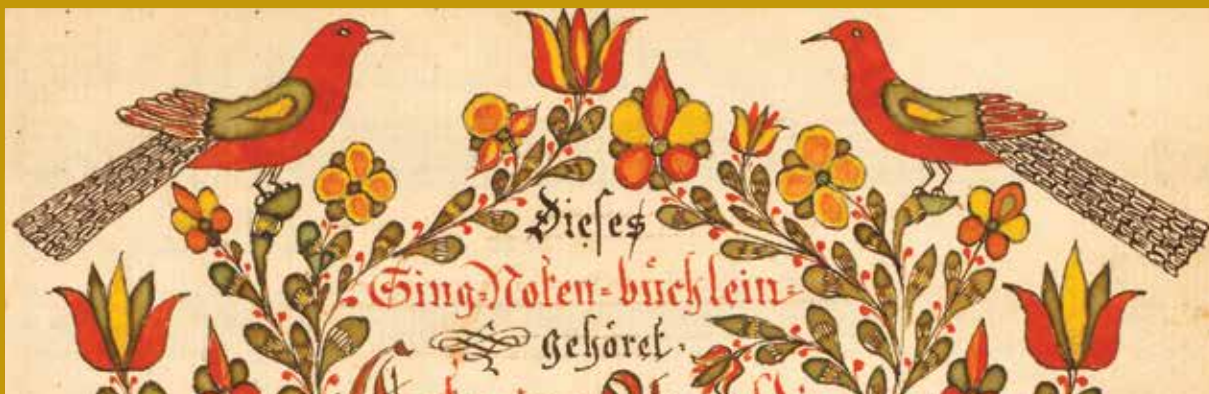 Dieses
Sing=Noten=büchlein=
gehöret.